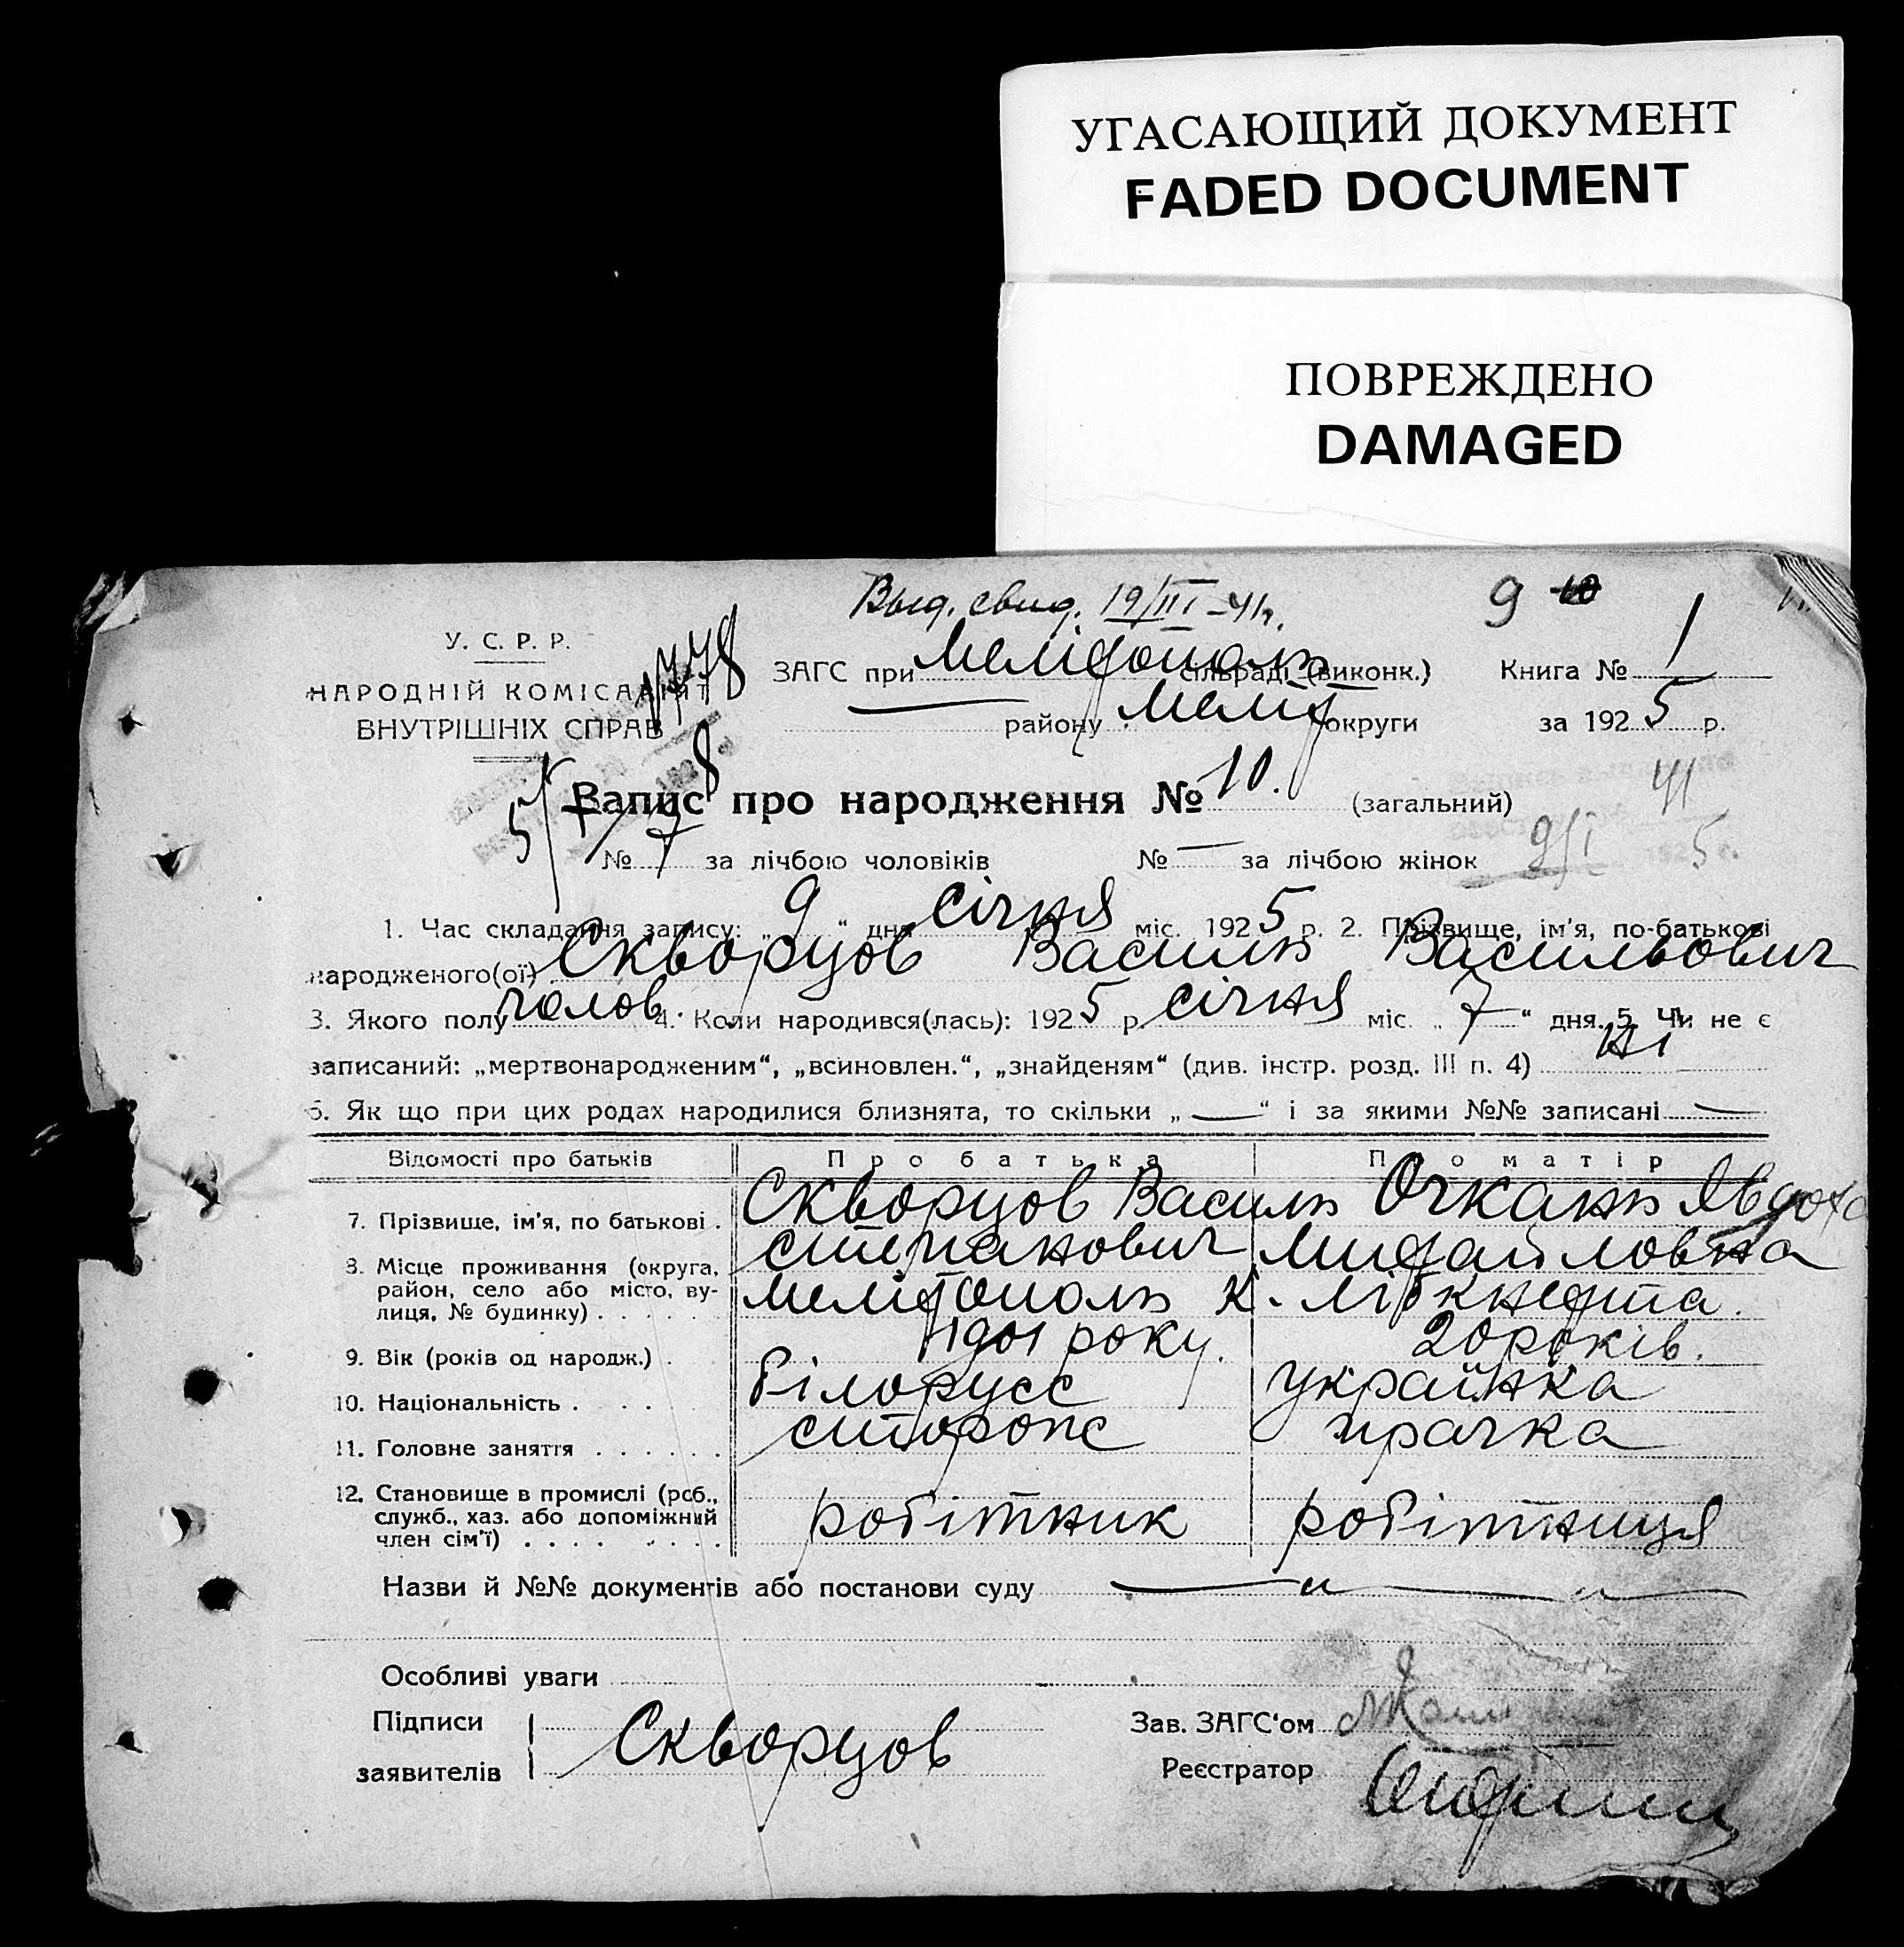 УГАСАЮЩИЙ ДОКУМЕНТ
FADED DOCUMENT
ПОВРЕЖДЕНО
DAMAGED
Выд. свид. 19/III-41г.
9 10
У. С. Р. Р.
НАРОДНІЙ КОМІСАРІЯТ
ВНУТРІШНІХ СПРАВ
ЗАГС при Мелітополь сільраді (виконк.) Книга № 1
— району Меліт округи за 1925 р.
Запис про народження № 10. (загальний) 41
№ 7 за лічбою чоловіків № — за лічбою жінок 9/I 1925 г.
1. Час складання запису: „9“ дня січня міс. 1925 р. 2. Прізвище, ім'я, по-батькові
народженого(ої) Скворцов Василь Васильович
3. Якого полу чолов. 4. Коли народився(лась): 1925 р. січня міс. „7“ дня. 5. Чи не є
записаний: „мертвонародженим“, „всиновлен.“, „знайденям“ (див. інстр. розд. III п. 4) ні
6. Як що при цих родах народилися близнята, то скільки „—“ і за якими №№ записані —
Відомості про батьків Про батька Про матір
7. Прізвище, ім'я, по батькові . Скворцов Василь Степанович Очкань Явдоха Михайловна
8. Місце проживання (округа, район, село або місто, вулиця, № будинку) . . . . . Мелітополь К. Лібкнехта.
9. Вік (років од народж.) . 1901 року. 20 років.
10. Національність . . . . білорусс українка
11. Головне заняття . . . . . . сторож прачка
12. Становище в промислі (роб., служб., хаз. або допоміжний член сім'ї) . . . . . . . . робітник робітниця
Назви й №№ документів або постанови суду — „ — „ —
Особливі уваги
Підписи
заявителів Скворцов
Зав. ЗАГС'ом
Реєстратор